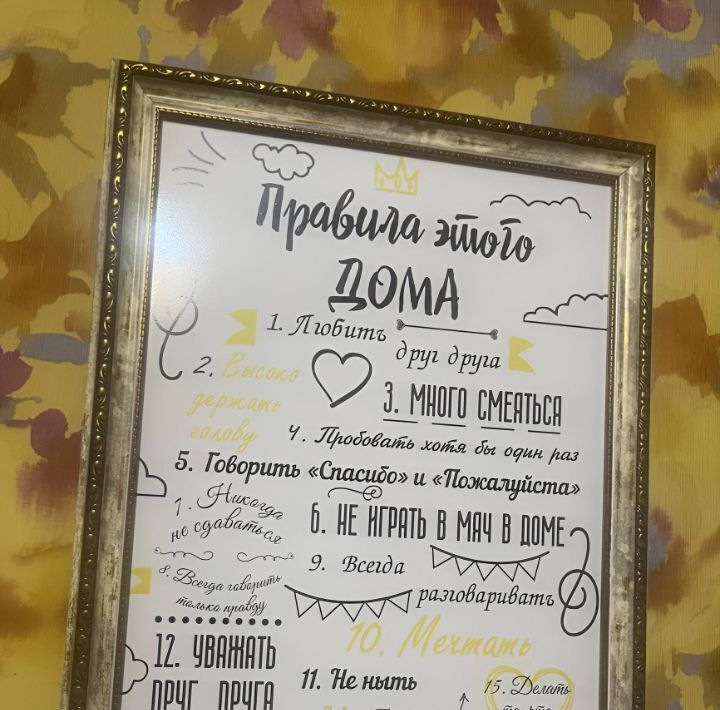 Правила этого
ДОМА
1. Любить
друг друга
2. Высоко
держать
голову
3. МНОГО СМЕЯТЬСЯ
4. Пробовать хотя бы один раз
5. Говорить «Спасибо» и «Пожалуйста»
7. Никогда
не сдаваться
6. НЕ ИГРАТЬ В МЯЧ В ДОМЕ
8. Всегда говорить
только правду
9. Всегда
разговаривать
10. Мечтать
12. УВАЖАТЬ
ДРУГ ДРУГА
11. Не ныть
15. Делать